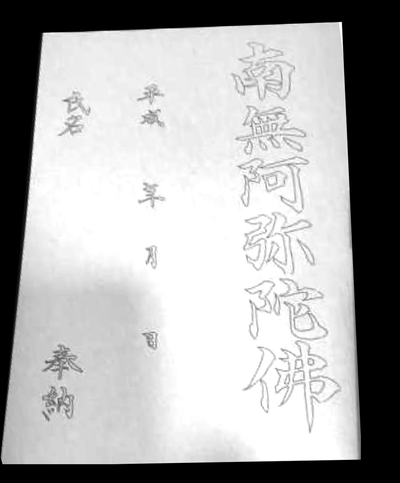 南無阿弥陀佛
平成 年 月 日
氏名 奉納